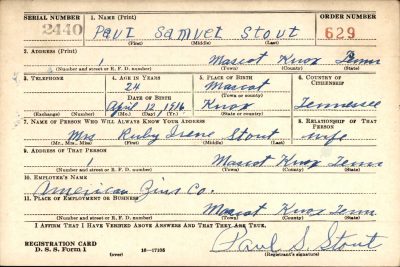 SERIAL NUMBER 1. NAME (Print) ORDER NUMBER
2440 Paul Samuel Stout 629
(First) (Middle) (Last)
2. ADDRESS (Print)
1 Mascot Knox Tenn
(Number and street or R. F. D. number) (Town) (County) (State)
3. TELEPHONE 4. AGE IN YEARS 5. PLACE OF BIRTH 6. COUNTRY OF CITIZENSHIP
24 Mascot
DATE OF BIRTH (Town or county)
April 12, 1916 Knox Tennessee
(Exchange) (Number) (Mo.) (Day) (Yr.) (State or country)
7. NAME OF PERSON WHO WILL ALWAYS KNOW YOUR ADDRESS 8. RELATIONSHIP OF THAT PERSON
Mrs Ruby Irene Stout wife
(Mr., Mrs., Miss) (First) (Middle) (Last)
9. ADDRESS OF THAT PERSON
1 Mascot Knox Tenn
(Number and street or R. F. D. number) (Town) (County) (State)
10. EMPLOYER'S NAME
American Zinc Co.
11. PLACE OF EMPLOYMENT OR BUSINESS
Mascot Knox Tenn
(Number and street or R. F. D. number) (Town) (County) (State)
I AFFIRM THAT I HAVE VERIFIED ABOVE ANSWERS AND THAT THEY ARE TRUE.
REGISTRATION CARD Paul S. Stout
D. S. S. Form 1 (over) 16—17105 (Registrant's signature)